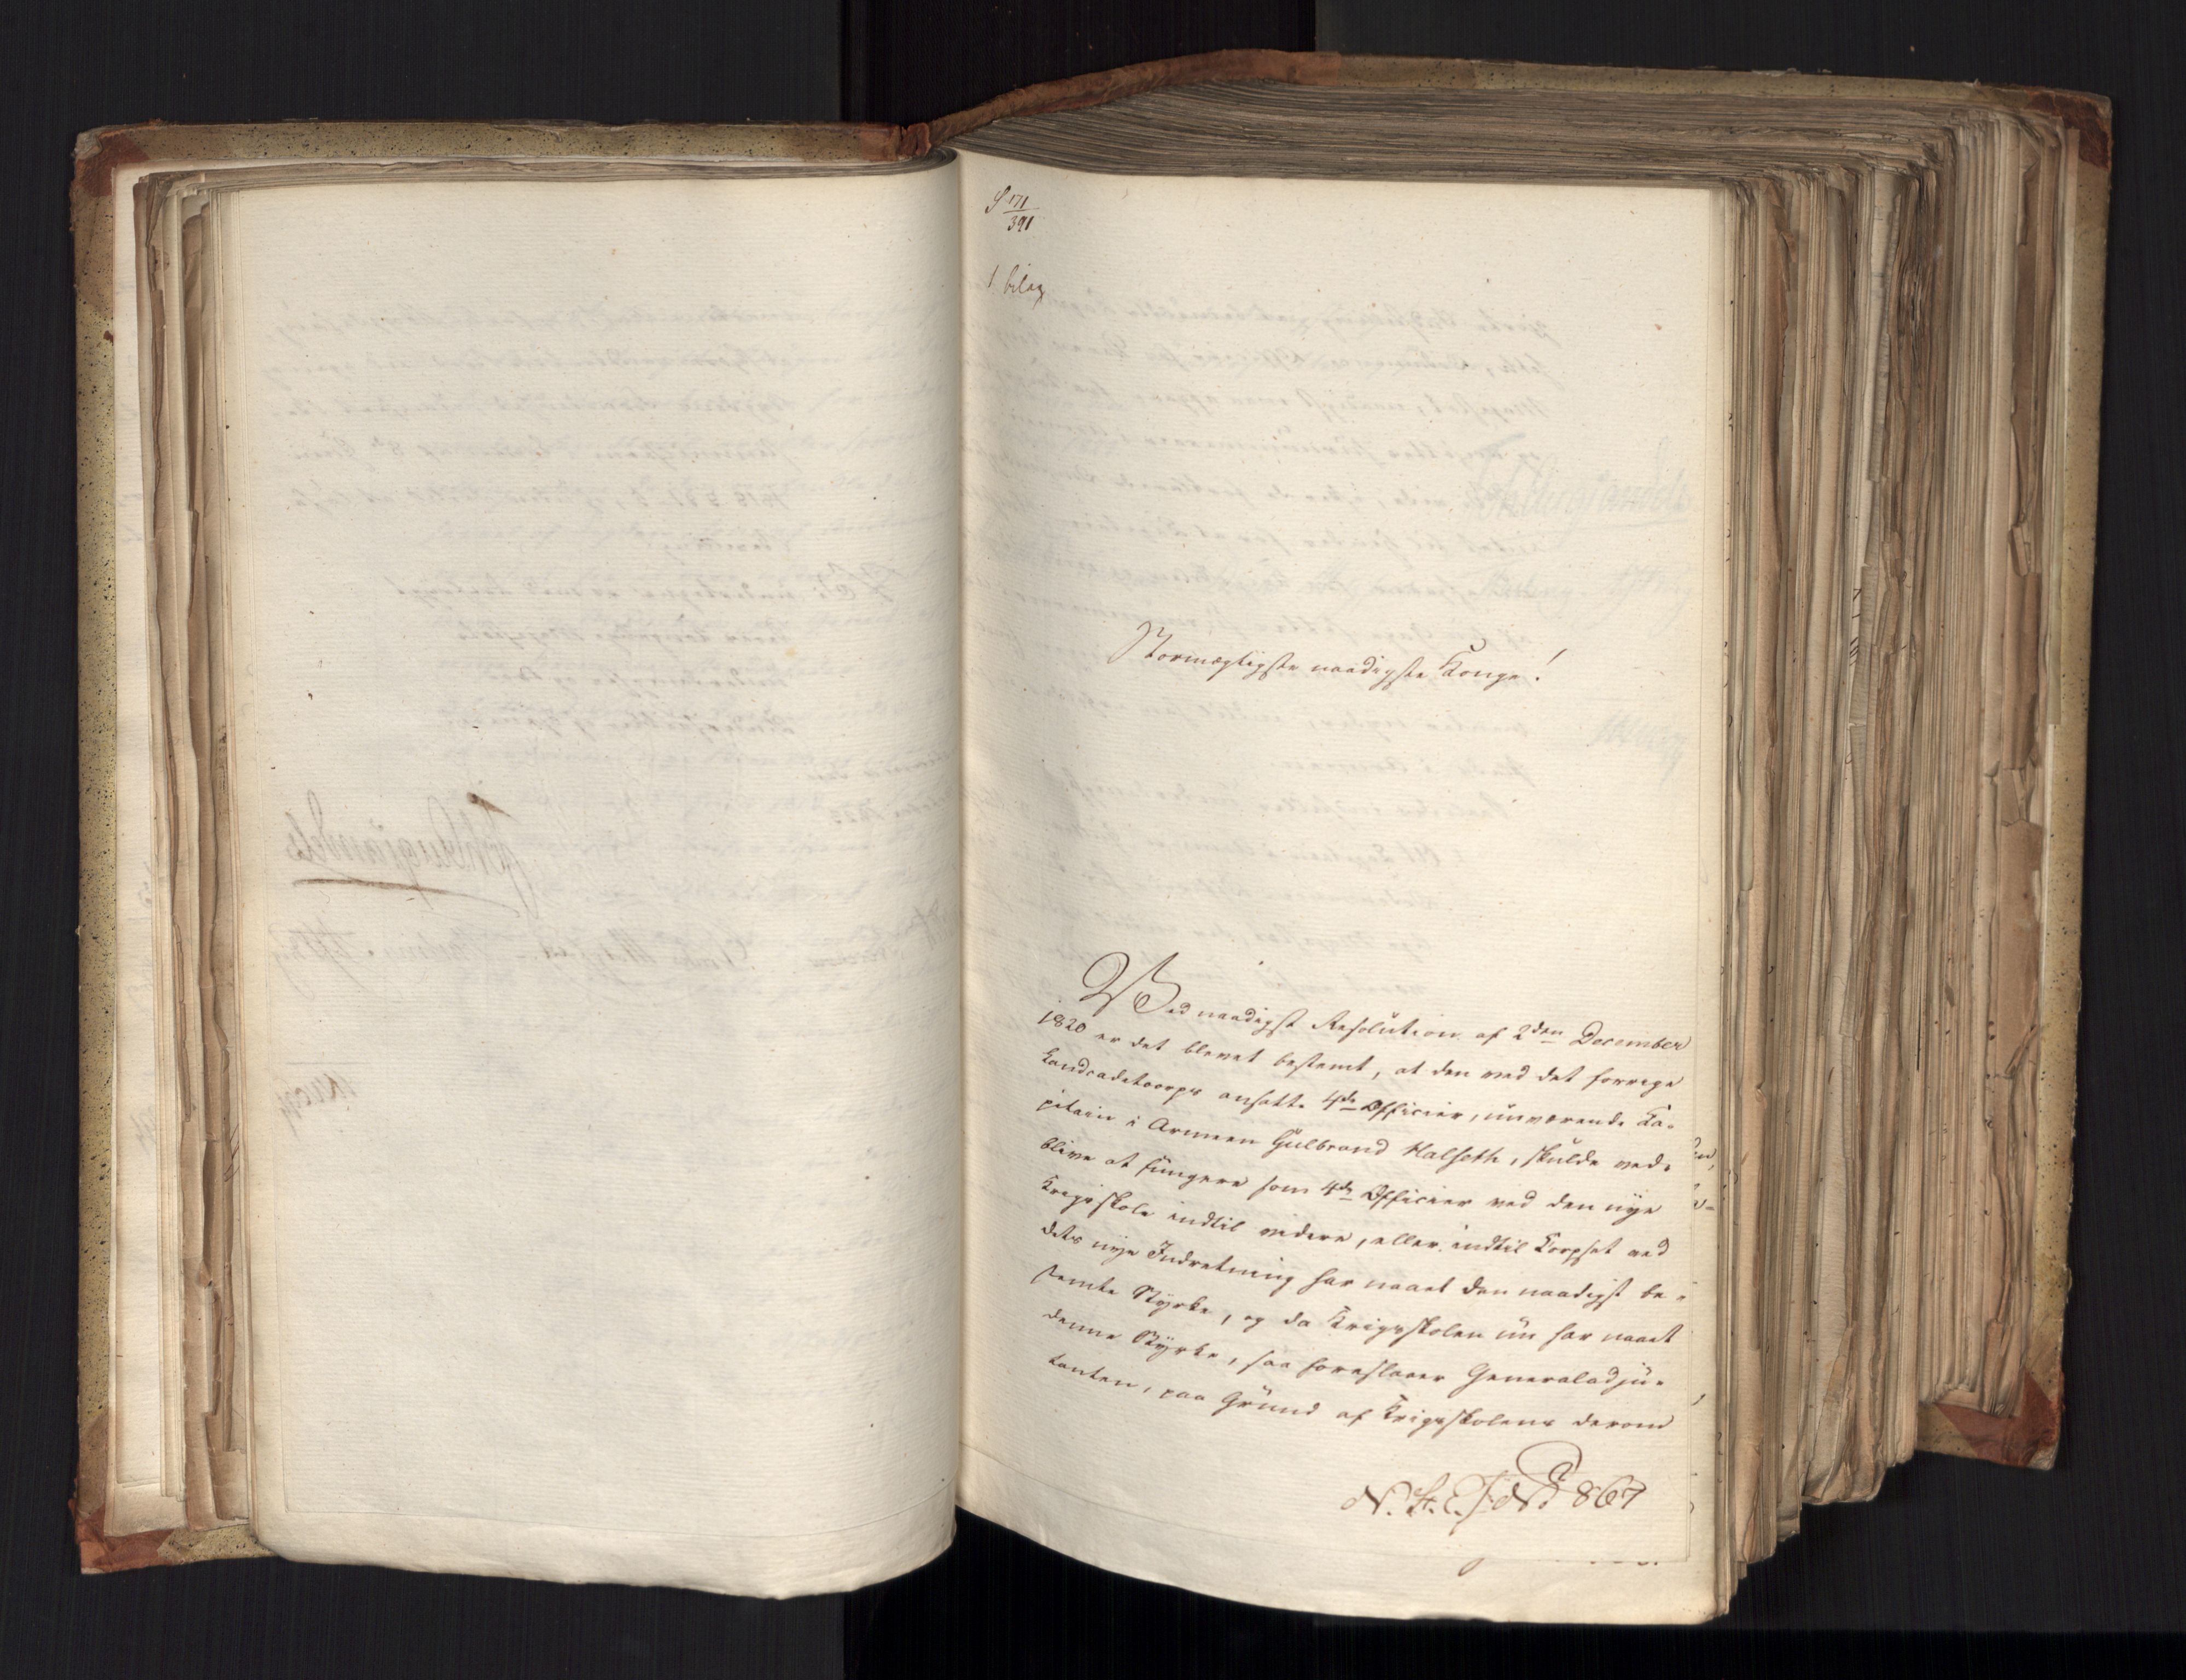 S 171/391
1 bilag
Stormægtigste naadigste Konge!
Ved naadigst Resolution af 2den December
1820 er det blevet bestemt, at den ved det forrige
Landcadetcorps ansatte 4de Officier, nuværende Ca-
pitain i Armeen Gulbrand Halseth, skulde ved-
blive at fungere som 4de Officier ved den nye
Krigsskole indtil videre, eller indtil Corpset ved
dets nye Indretning har naaet den naadigst be-
stemte Styrke, og da Krigsskolen nu har naaet
denne Styrke, saa foreslaaer Generaladju-
tanten, paa Grund af Krigsskolens derom
867